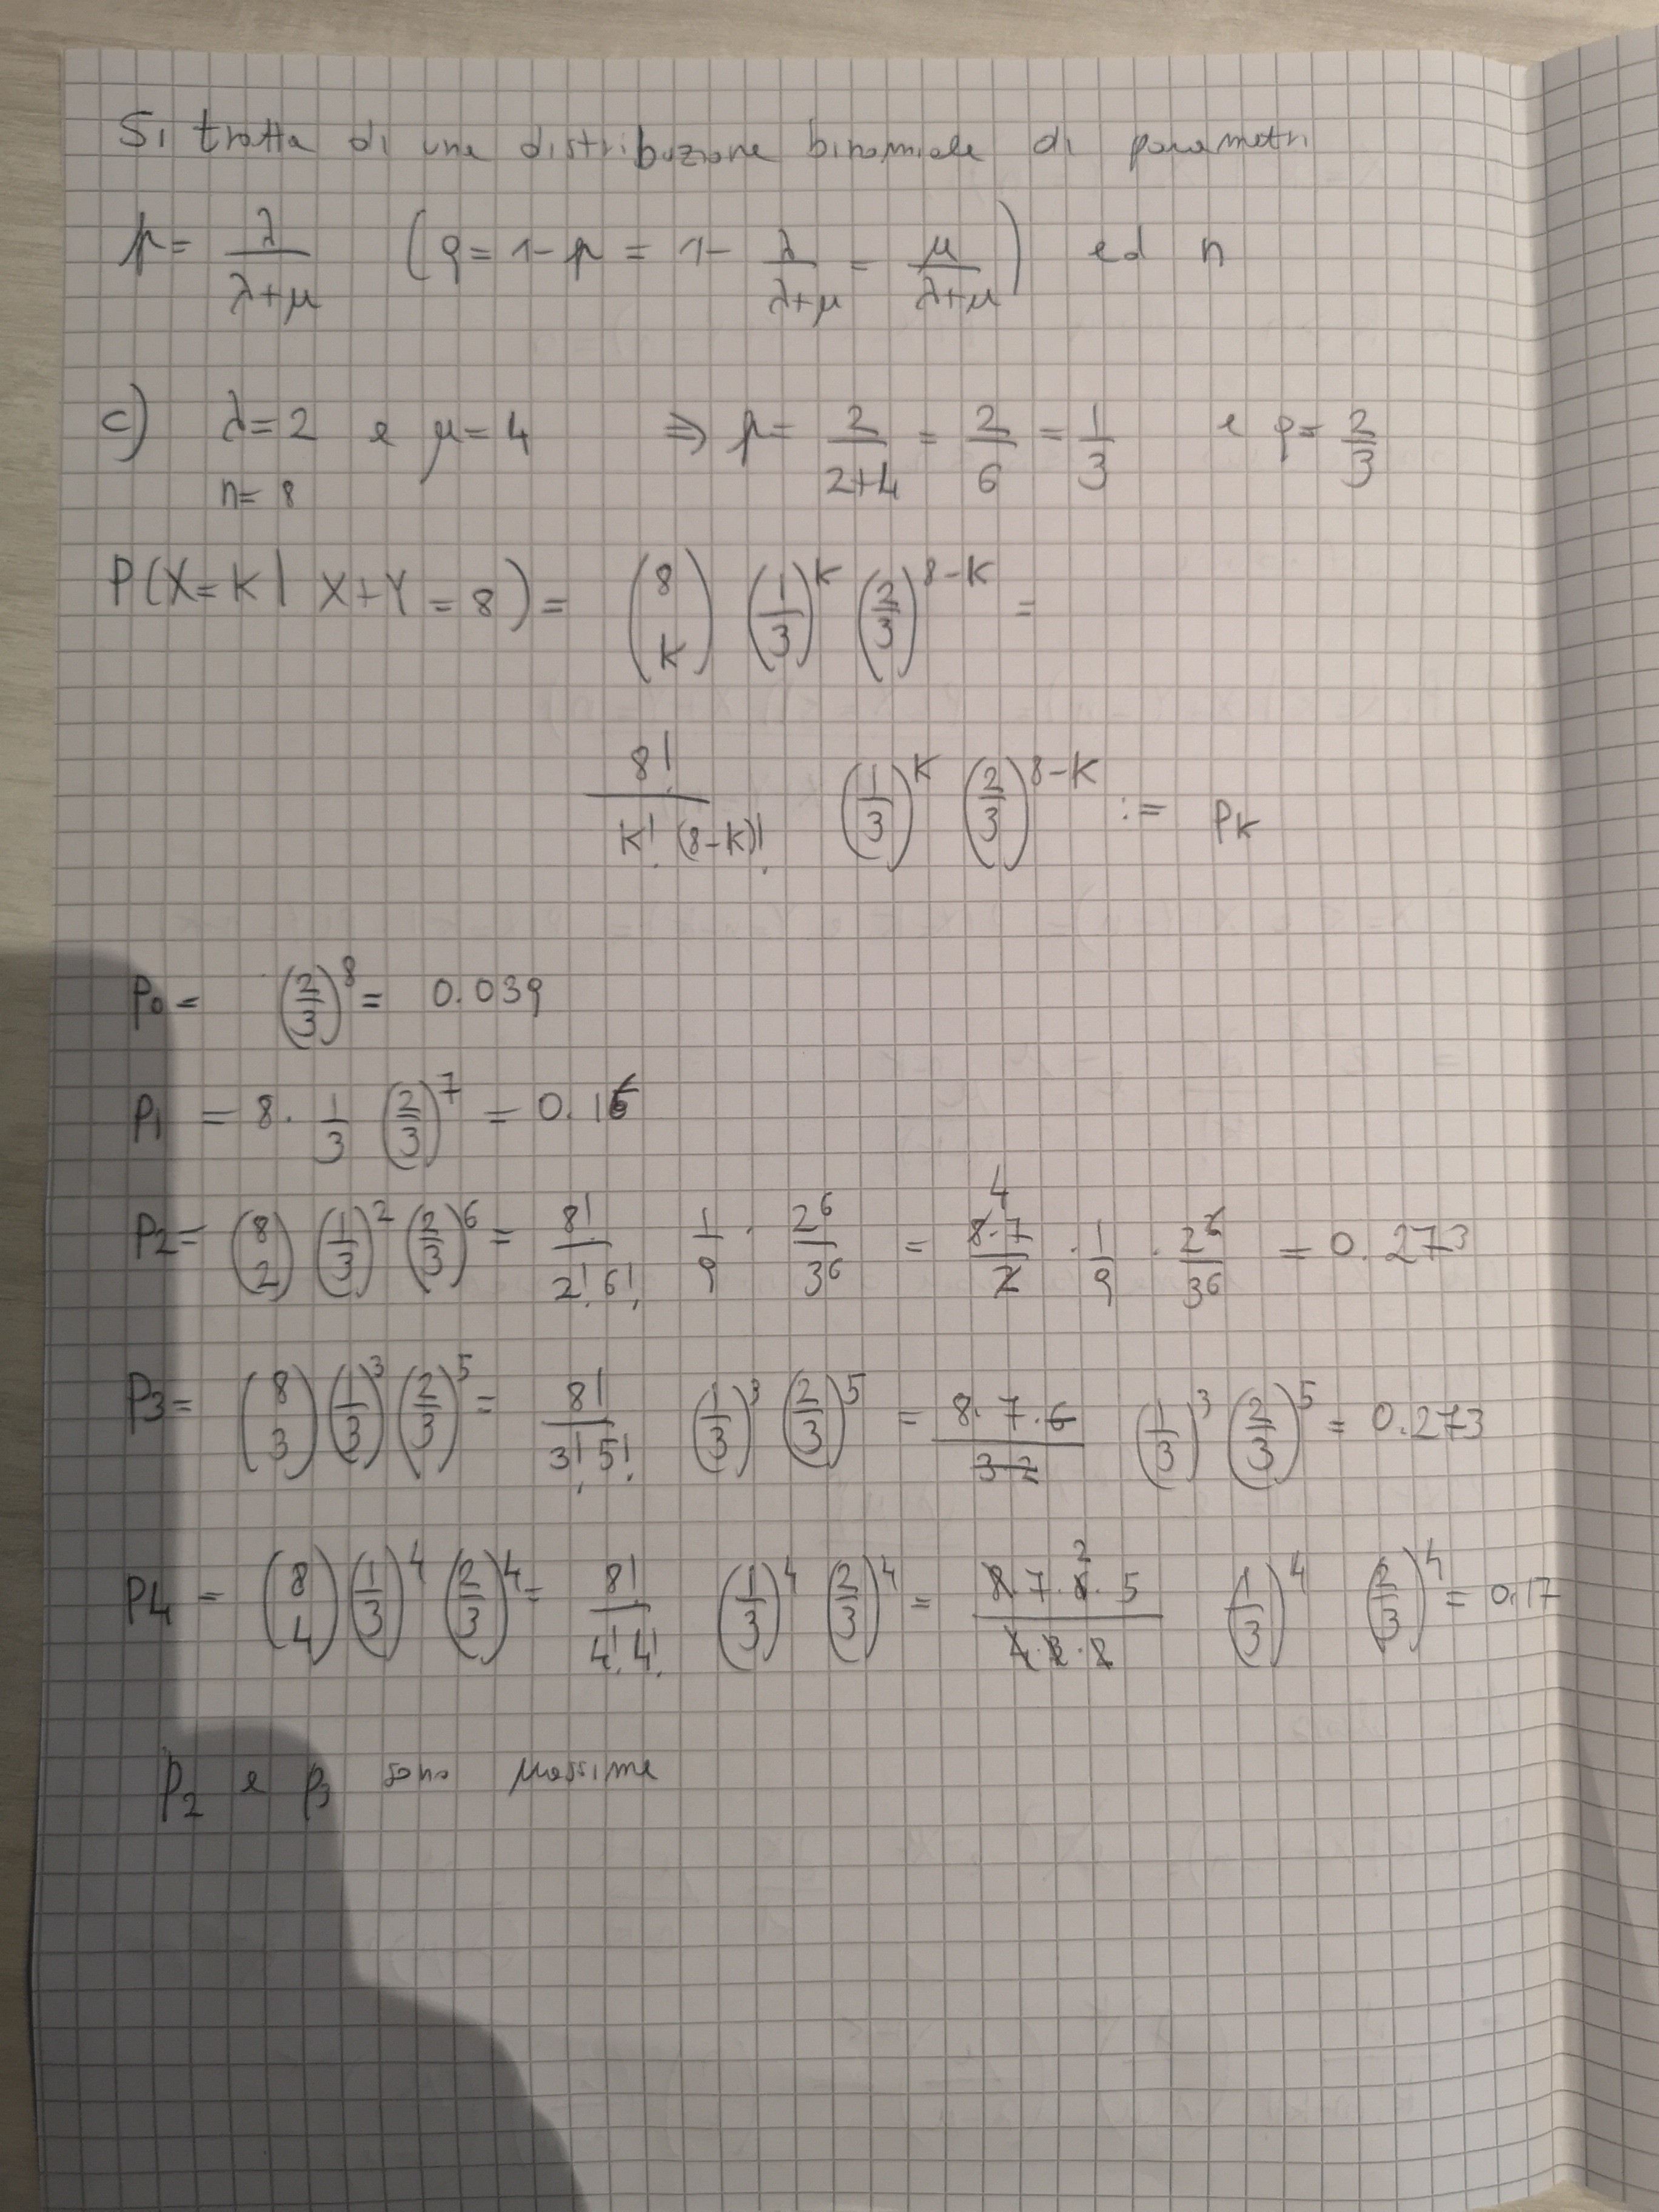 Si tratta di una distribuzione binomiale di parametri
p = λ/(λ+μ) (q = 1-p = 1 - λ/(λ+μ) = μ/(λ+μ)) ed n
c) λ=2 e μ=4 ⇒ p = 2/(2+4) = 2/6 = 1/3 e q = 2/3
n=8
P(X=K | X+Y=8) = (8 K) (1/3)^K (2/3)^(8-K) =
8!/(K! (8-K)!) (1/3)^K (2/3)^(8-K) := pK
p0 = (2/3)^8 = 0.039
p1 = 8 · 1/3 (2/3)^7 = 0.16
p2 = (8 2) (1/3)^2 (2/3)^6 = 8!/(2! 6!) 1/9 · 2^6/3^6 = 4 8·7/2 · 1/9 · 2^6/3^6 = 0.273
p3 = (8 3) (1/3)^3 (2/3)^5 = 8!/(3! 5!) (1/3)^3 (2/3)^5 = 8·7·6/(3 2) (1/3)^3 (2/3)^5 = 0.273
p4 = (8 4) (1/3)^4 (2/3)^4 = 8!/(4! 4!) (1/3)^4 (2/3)^4 = 2 8·7·6·5/(4·3·2) (1/3)^4 (2/3)^4 = 0.17
p2 e p3 sono massime